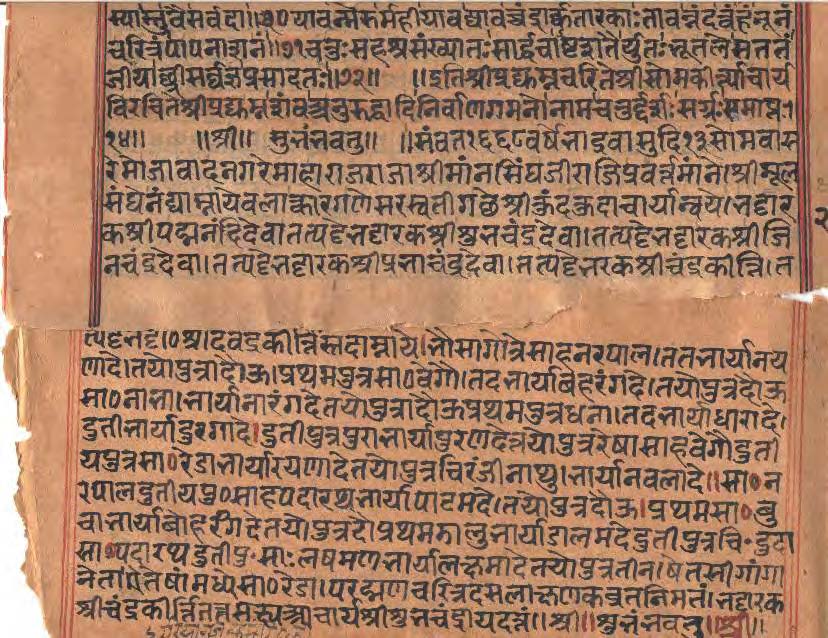 स्यास्तुवैसर्वदा॥७०यावन्मेरुर्महीयावद्यावच्चंद्रार्कतारकाः।तावन्नंदत्वहंनूनं
चरित्रंपापनाशनं॥७१चतुःसहस्रसंख्यातःसार्द्धचाष्टशतैर्युतःभूतलेसततं
जीयाच्छ्रीसर्वज्ञप्रसादतः॥७२॥ ॥इतिश्रीप्रद्युम्नचरितेश्रीसोमकीर्त्याचार्य
विरचितेश्रीप्रद्युम्नशंबअनुरुद्धादिनिर्वाणगमनोनामचतुर्दशःसर्गःसमाप्तः
१४॥ ॥श्री॥ शुभंभवतु॥ ॥संवत१६६८वर्षेभाद्रवासुदि११सोमवास
रेमोजावादनगरेमाहाराजराजाश्रीमांनसिंघजीराजिप्रवर्त्तमाने।श्रीमूल
संघेनंद्याम्नायेवलात्कारगणेसरस्वतीगछेश्रीकुंदकुदाचार्यान्वये।भट्टार
कश्रीपद्मनंदिदेवातत्पट्टेभट्टारकश्रीशुभचंद्रदेवा।तत्पट्टेभट्टारकश्रीजि
नचंद्रदेवा।तत्पट्टेभट्टारकश्रीप्रभाचंद्रदेवा।तत्पट्टेभरकश्रीचंद्रकीर्त्ति।त
त्पट्टेभट्टा०श्रीदेवेंद्रकीर्त्तिस्तदाम्नाये।भौसागोत्रेसाहनरपाल।ततभार्यानय
णादे।तयोपुत्रादौऊ।प्रथमपुत्रसा०वेगौ।तदभार्याबोहरंगदे।तयोपुत्रदौऊ
सा०नाना।भार्यानारंगदेतयोपुत्रादौऊप्रथमपुत्रधना।तदभार्याधारादे।
दुतीभार्यादुरगादे।दुतीपुत्रपुराभार्यापुरणदेत्रयोपुत्ररेषासाहवेगौदुती
यपुत्रसा०रेडाभार्यारयणादेतयोपुत्रचिरंजीनाथु।भार्यानवलादे॥सा०न
रपालदुतीयपु०साहपदारथभार्यापाटमदे।तयोपुत्रदौऊ।प्रथमसा०बु
चाभार्याबोहरंगदेतयोपुत्रदौ।प्रथमकालुभार्याडालमदेदुतीपुत्रचि०दुदा
सा०पदारथदुतीपु०साःलषमणभार्यालछमादेतयोपुत्रतीन।षेतसीगांगा
नेता।ऐतेषांमध्येसा०रेडा।परद्मणचरित्रदसलाक्षणकव्रतनिमतं।भट्टारक
श्रीचंद्रकीर्त्तितत्सक्ष्यआचार्यश्रीशुभचंद्रायदत्तं॥श्री॥शुभंभवतु॥श्री॥